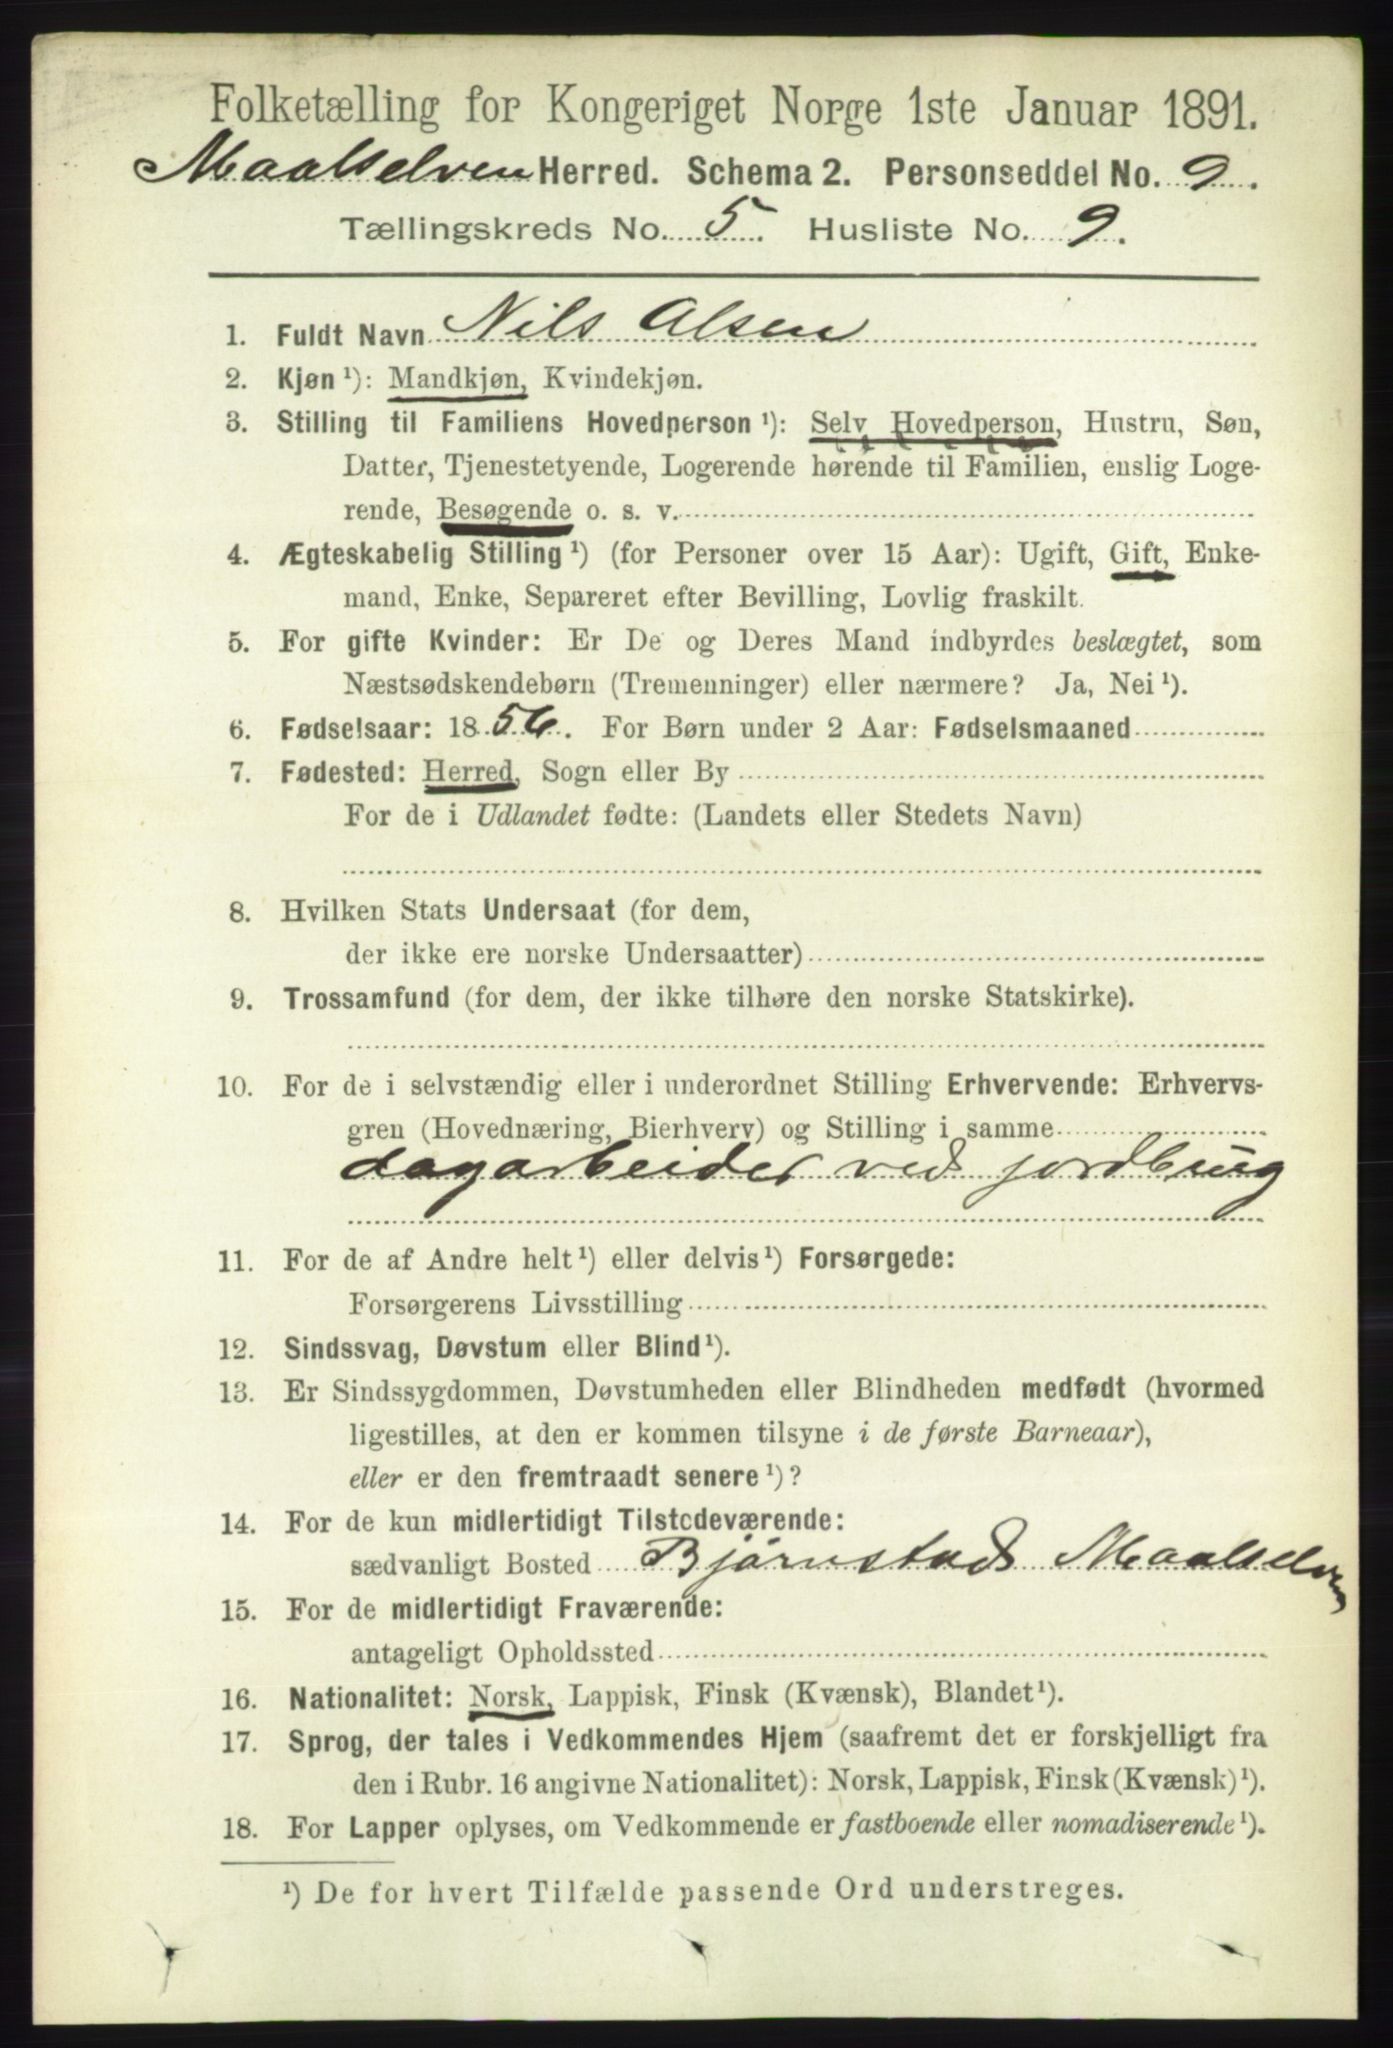 Folketælling for Kongeriget Norge 1ste Januar 1891.
Maalselven Herred. Schema 2. Personseddel No. 9.
Tællingskreds No. 5. Husliste No. 9.
1. Fuldt Navn Nils Olsen
2. Kjøn ¹): Mandkjøn, Kvindekjøn.
3. Stilling til Familiens Hovedperson ¹): Selv Hovedperson, Hustru, Søn,
Datter, Tjenestetyende, Logerende hørende til Familien, enslig Loge-
rende, Besøgende o. s. v.
4. Ægteskabelig Stilling ¹) (for Personer over 15 Aar): Ugift, Gift, Enke-
mand, Enke, Separeret efter Bevilling, Lovlig fraskilt.
5. For gifte Kvinder: Er De og Deres Mand indbyrdes beslægtet, som
Næstsødskendebørn (Tremenninger) eller nærmere? Ja, Nei ¹).
6. Fødselsaar: 1856. For Børn under 2 Aar: Fødselsmaaned
7. Fødested: Herred, Sogn eller By
For de i Udlandet fødte: (Landets eller Stedets Navn)
8. Hvilken Stats Undersaat (for dem,
der ikke ere norske Undersaatter)
9. Trossamfund (for dem, der ikke tilhøre den norske Statskirke).
10. For de i selvstændig eller i underordnet Stilling Erhvervende: Erhvervs-
gren (Hovednæring, Bierhverv) og Stilling i samme
dagarbeider ved jordbrug
11. For de af Andre helt ¹) eller delvis ¹) Forsørgede:
Forsørgerens Livsstilling
12. Sindssvag, Døvstum eller Blind ¹).
13. Er Sindssygdommen, Døvstumheden eller Blindheden medfødt (hvormed
ligestilles, at den er kommen tilsyne i de første Barneaar),
eller er den fremtraadt senere ¹)?
14. For de kun midlertidigt Tilstedeværende:
sædvanligt Bosted Bjørnstad Maalselven
15. For de midlertidigt Fraværende:
antageligt Opholdssted
16. Nationalitet: Norsk, Lappisk, Finsk (Kvænsk), Blandet ¹).
17. Sprog, der tales i Vedkommendes Hjem (saafremt det er forskjelligt fra
den i Rubr. 16 angivne Nationalitet): Norsk, Lappisk, Finsk (Kvænsk) ¹).
18. For Lapper oplyses, om Vedkommende er fastboende eller nomadiserende ¹).
¹) De for hvert Tilfælde passende Ord understreges.